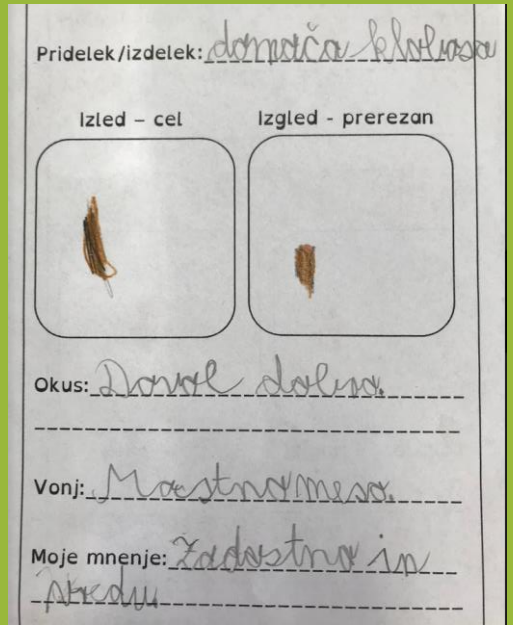 Pridelek/izdelek: domača klobasa
Izled – cel
Izgled - prerezan
Okus: Dovol dobro.
Vonj: Mastno meso.
Moje mnenje: Zadostno in